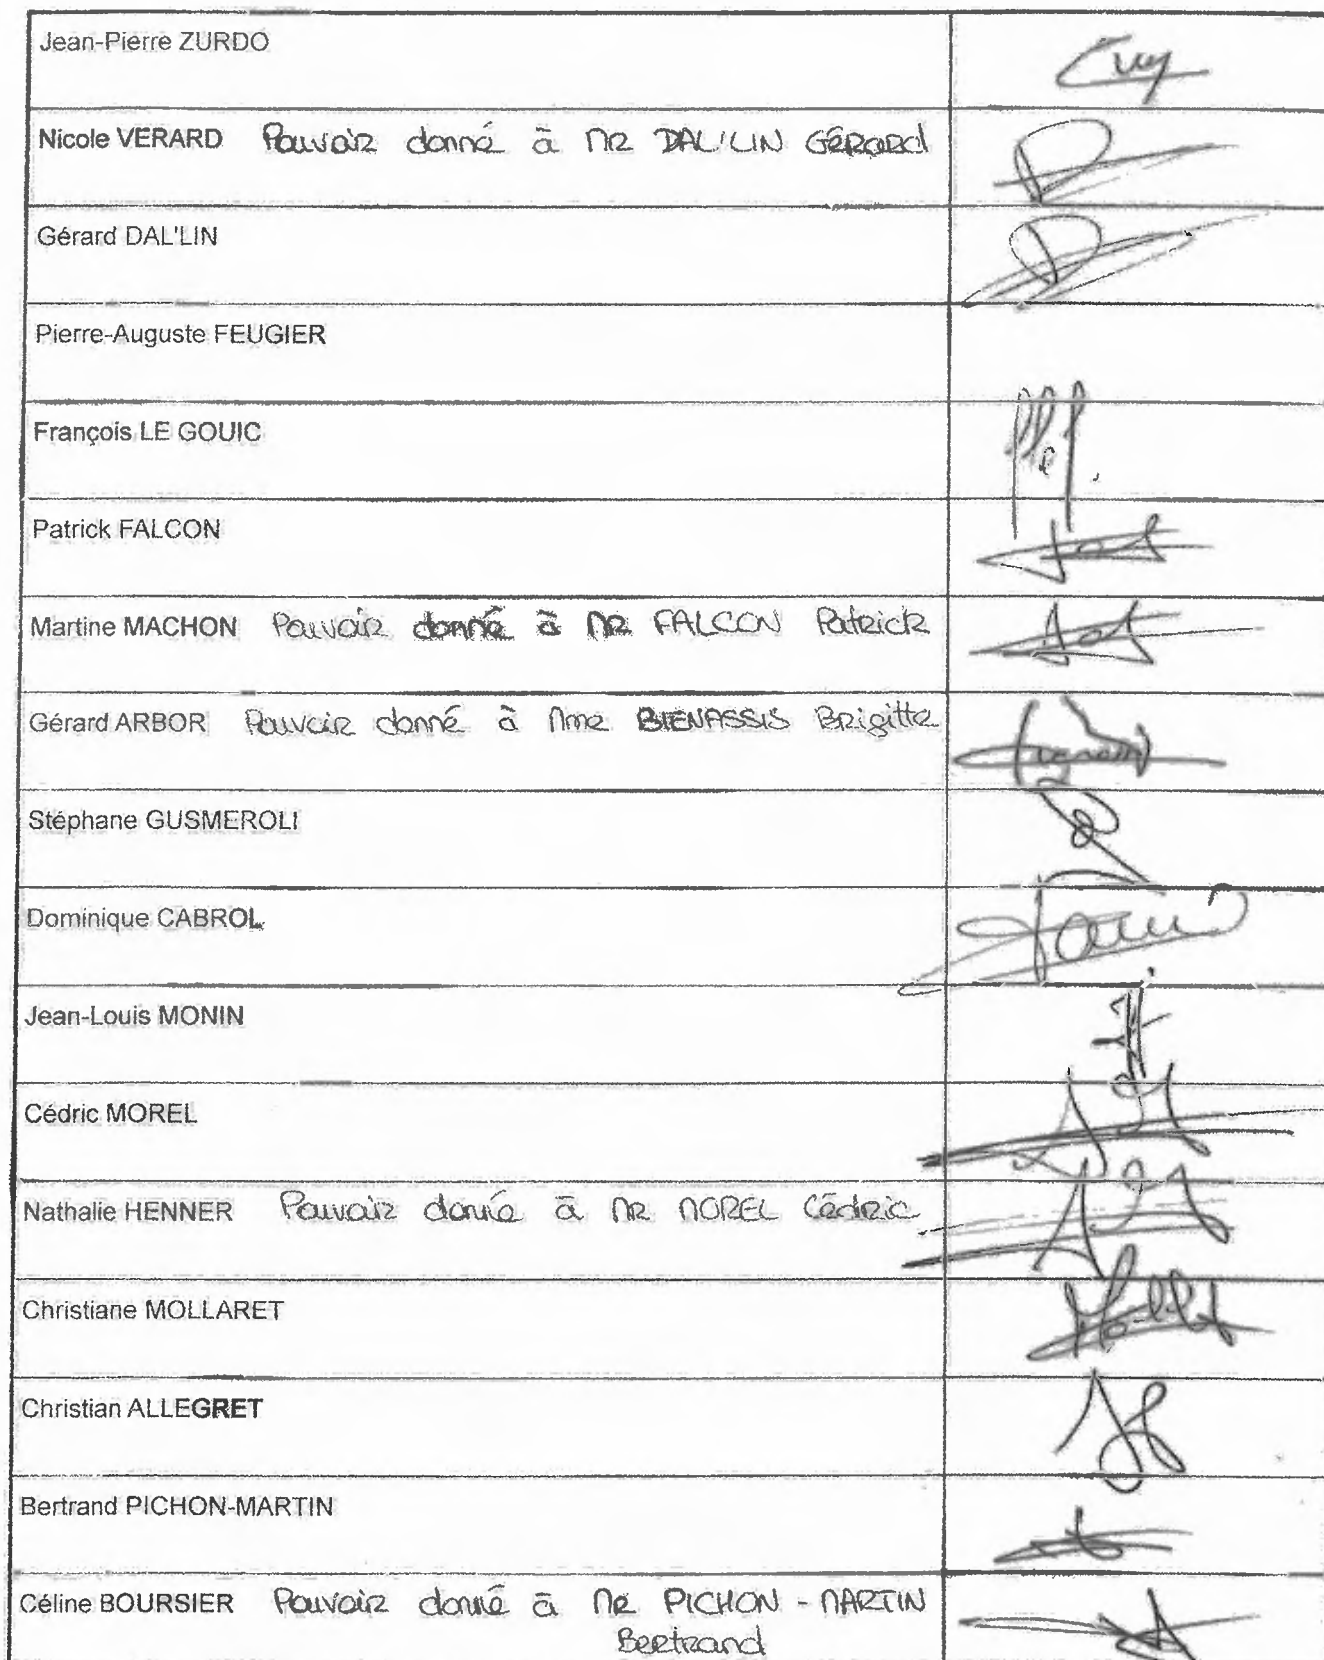 Jean-Pierre ZURDO
Nicole VERARD Pouvoir donné à Mr DAL'LIN GÉRARD
Gérard DAL'LIN
Pierre-Auguste FEUGIER
François LE GOUIC
Patrick FALCON
Martine MACHON Pouvoir donné à Mr FALCON Patrick
Gérard ARBOR Pouvoir donné à Mme BIENASSIS Brigitte
Stéphane GUSMEROLI
Dominique CABROL
Jean-Louis MONIN
Cédric MOREL
Nathalie HENNER Pouvoir donné à Mr MOREL Cédric
Christiane MOLLARET
Christian ALLEGRET
Bertrand PICHON-MARTIN
Céline BOURSIER Pouvoir donné à Mr PICHON - MARTIN
Bertrand